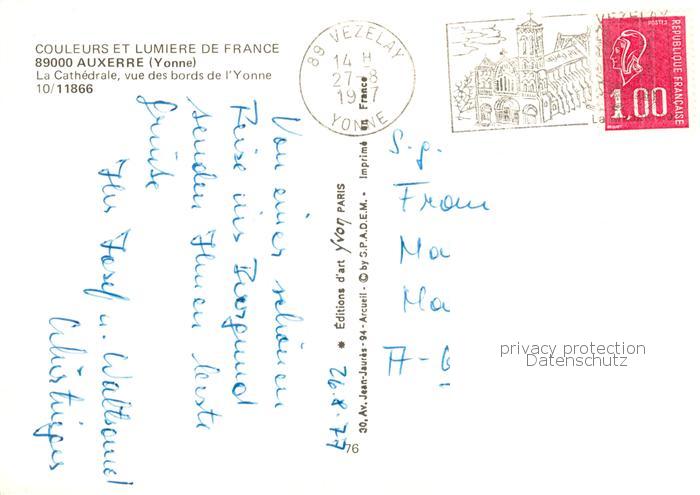 COULEURS ET LUMIERE DE FRANCE
89000 AUXERRE (Yonne)
La Cathédrale, vue des bords de l'Yonne
10/11866
89 VEZELAY
14 H
27-8
1977
YONNE
VEZELAY
La
POSTES
REPUBLIQUE FRANÇAISE
1,00
Von einer schönen
Reise ins Burgund
senden Ihnen beste
Grüsse
Ihr Josef u. Waltraud
26.8.77
✱ Éditions d'art Yvon PARIS
30, Av. Jean-Jaurès - 94 - Arcueil - © by S.P.A.D.E.M. - Imprimé en France
76
S.g.
Frau
Ma
Ma
A-6
privacy protection
Datenschutz